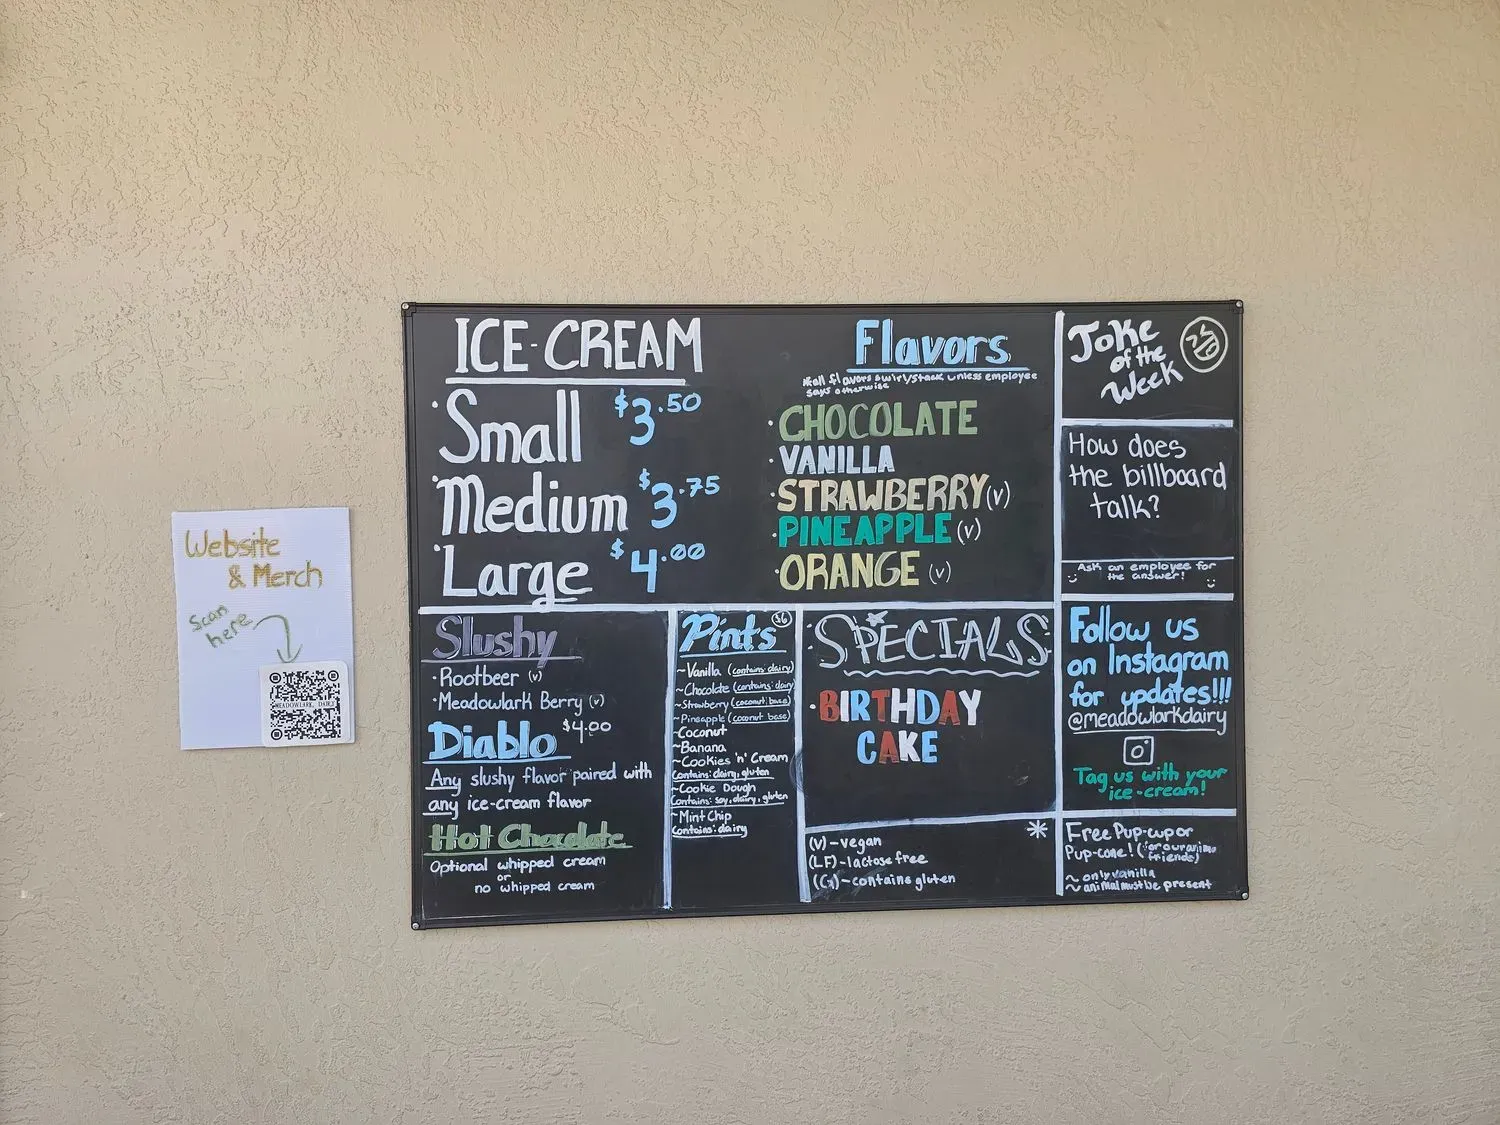 Website
& Merch
Scan
here
MEADOWLARK DAIRY
ICE-CREAM
·Small $3.50
·Medium $3.75
·Large $4.00
Flavors
*all flavors swirl/stack unless employee
says otherwise
·CHOCOLATE
·VANILLA
·STRAWBERRY (v)
·PINEAPPLE (v)
·ORANGE (v)
Joke
of the
Week
How does
the billboard
talk?
Ask an employee for
the answer!
Slushy
·Rootbeer (v)
·Meadowlark Berry (v)
Diablo $4.00
Any slushy flavor paired with
any ice-cream flavor
Hot Chocolate
Optional whipped cream
or
no whipped cream
Pints $6
~Vanilla (contains: dairy)
~Chocolate (contains: dairy)
~Strawberry (coconut base)
~Pineapple (coconut base)
~Coconut
~Banana
~Cookies 'n' Cream
Contains: dairy, gluten
~Cookie Dough
Contains: soy, dairy, gluten
~Mint Chip
Contains: dairy
SPECIALS
·BIRTHDAY
CAKE
*
(V)-vegan
(LF)-lactose free
(G)-contains gluten
Follow us
on Instagram
for updates!!!
@meadowlarkdairy
Tag us with your
ice-cream!
Free Pup-cup or
Pup-cone! (for our animo
friends)
~ only vanilla
~ animal must be present